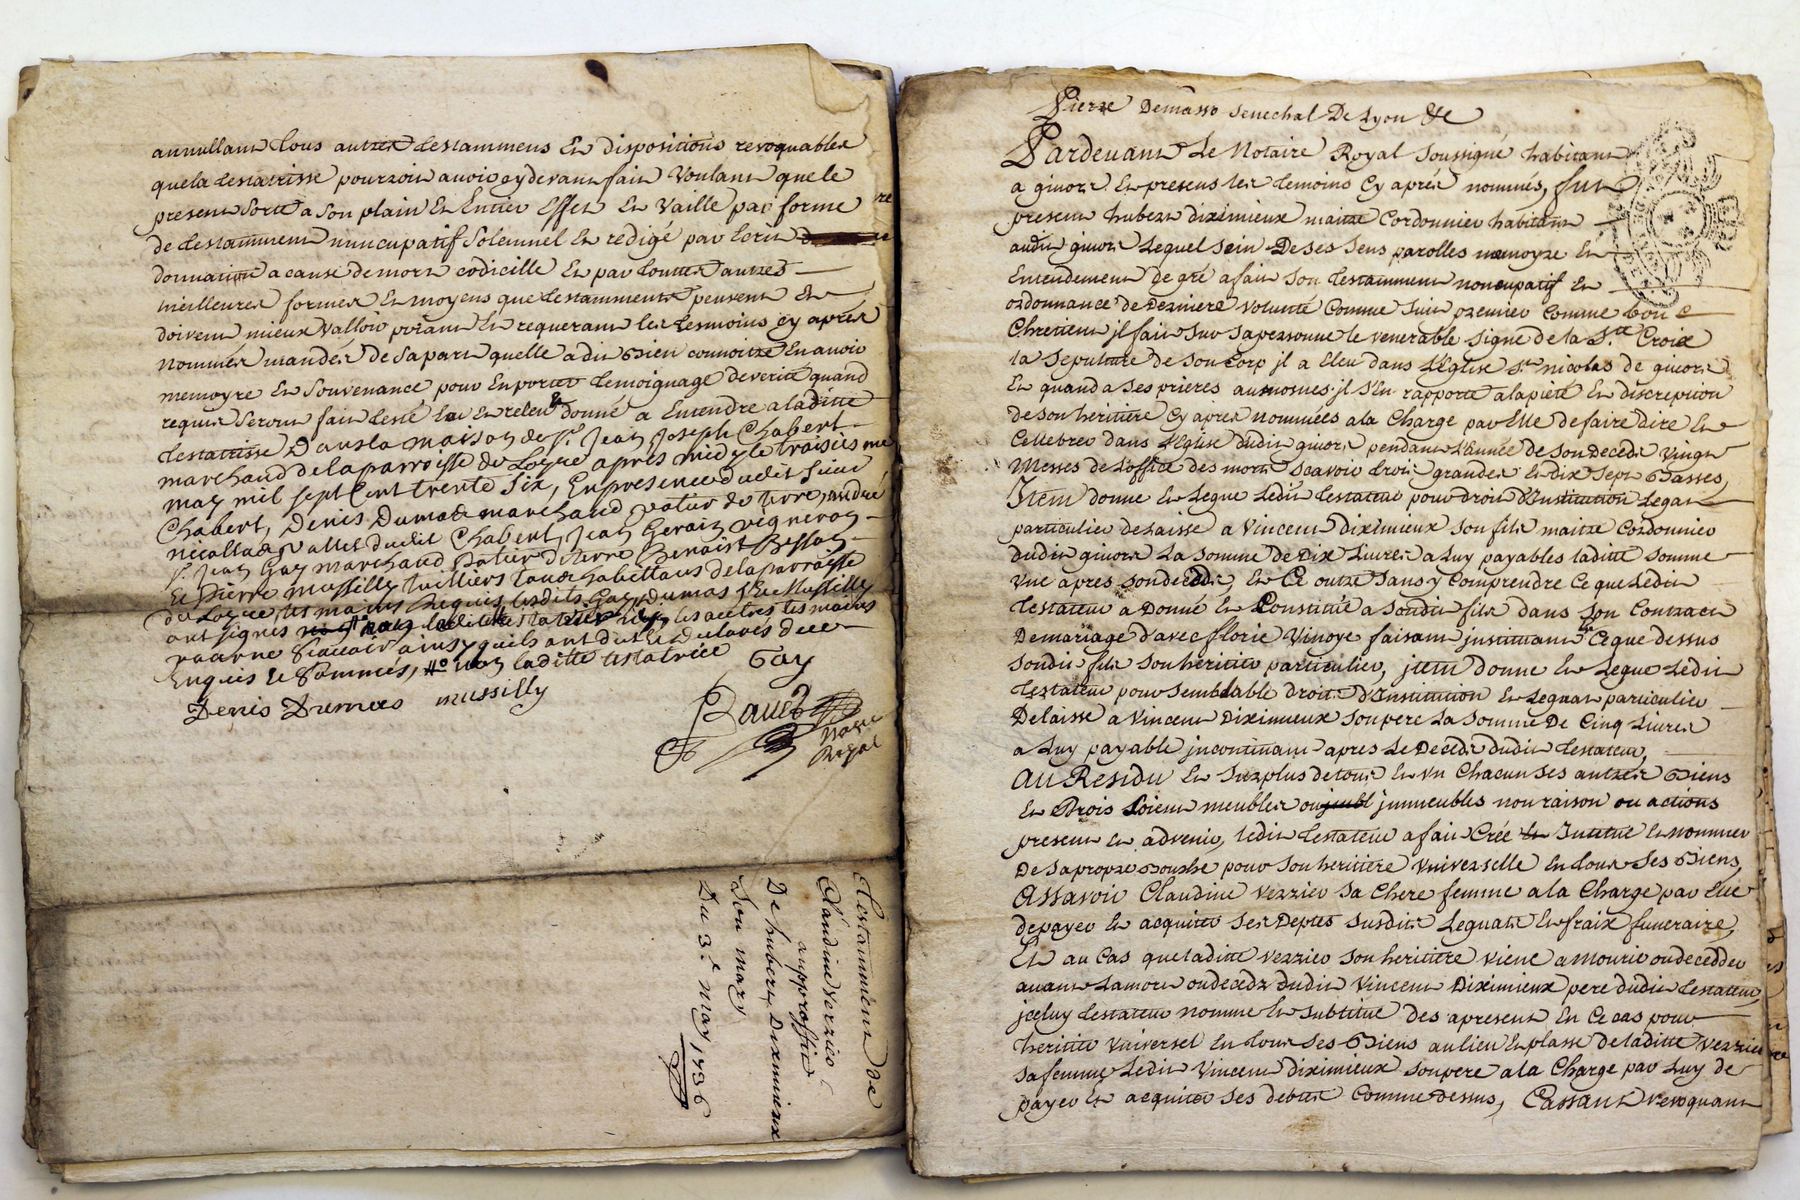 annullant tous autres testammens et dispositions revoquables
que la testatrisse pourroit avoir cy devant fait voulant que le
present sorte a son plain et entier effet et vaille par forme
de testamment nuncupatif solemnel et redigé par ecrit
donnation a cause de mort codicille et par toutes autres
meilleures formes et moyens que testamments peuvent et
doivent mieux valloir priant et requerant les tesmoins cy aprés
nommes mandés de sa part quelle a dit bien connoitre en avoir
memoyre et souvenance pour en porter temoignage de verité quand
requis seront fait testé leu et releu donné a entendre a laditte
testatrisse Dans la maison de Sr. Jean Joseph Chabert
marchand de la parroisse de Loyre apres midy le troisieme
may mil sept Cent trente Six, En presence dudit sieur
Chabert, Denis Dumas marchand potier de terre, andré
nicollas vallet dudit Chabert, Jean Gerain vigneron
Sr. Jean Gay marchand potier de terre Benoist Besson
et Pierre mussilly tuilliers tous habittans de la parroisse
de Loyre, tesmoins Requis, lesdits Gay, Dumas et Mussilly
ont signés les autres tesmoins
pour ne sçavoir ainsy quils ont dit et declarés de ce
Enquis et sommés, non laditte testatrice
Gay
Denis Dumas mussilly
Baud
Note
Royal
Testamment de
Claudine Verzier
au proffit
De hubert Diximieux
Son mary
Du 3e. may 1736
Pierre Demasso Senechal De Lyon &c
Pardevant Le Notaire Royal soussigné habitant
a givors et presens les temoins cy aprés nommés, fut
present hubert diximieux maitre Cordonnier habitant
audit givors lequel sein De ses sens parolles memoyre et
Entendement de gré a fait son testamment noncupatif et
ordonnance de derniere volunté Comme suit premier comme bon
Chretien il fait sur sa personne le venerable signe de la Ste Croix
la sepulture de son corp il a eleu dans l'Eglise St nicolas de givors
Et quand a ses prieres aumosnes il s'En rapporte a la pieté et discreption
de son heritiere cy apres nommées a la Charge par elle de faire dire et
Cellebrer dans l'Eglise dudit givors pendant l'année de son decedz vingt
Messes de l'office des morts scavoir trois grandes et dix sept basses
Item donne et legue ledit testateur pour droit d'Institution legat
particulier delaisse a Vincent diximieux son fils maitre Cordonnier
dudit givors la somme de Dix Livres a luy payables laditte somme
une apres son decedz, et ce outre sans y comprendre ce que ledit
testateur a Donné et Constitué a son dit fils dans son Contract
De mariage d'avec florie Vinoye faisant instituant ce que dessus
son dit fils son heritier particulier, item donne et legue ledit
testateur pour semblable droit d'Institution et legat particulier
Delaisse a Vincent Diximieux son pere la somme De Cinq Livres
a luy payable incontinant apres le Decedz dudit testateur,
au Residu et surplus de tous et un Chacun ses autres Biens
et Drois soient meubles ou immeubles nom raison ou actions
present et advenir, ledit testateur a fait Crée Institué et nommer
De sa propre bouche pour son heritiere universelle en tous ses Biens,
assavoir Claudine Verzier sa Chere femme a la Charge par elle
de payer et acquiter ses Deptes susdits leguats et fraix funeraire,
Et au Cas que laditte verzier son heritiere viene a mourir ou decedder
avant la mort ou decedz dudit Vincent Diximieux pere dudit testateur,
iceluy testateur nomme et subtitue des apresent En Ce cas pour
heritier universel En tous ses Biens au lieu et plasse de laditte verzier
sa femme ledit Vincent diximieux son pere a la Charge par luy de
payer et acquiter ses debtes Comme dessus, Cassant revoquant